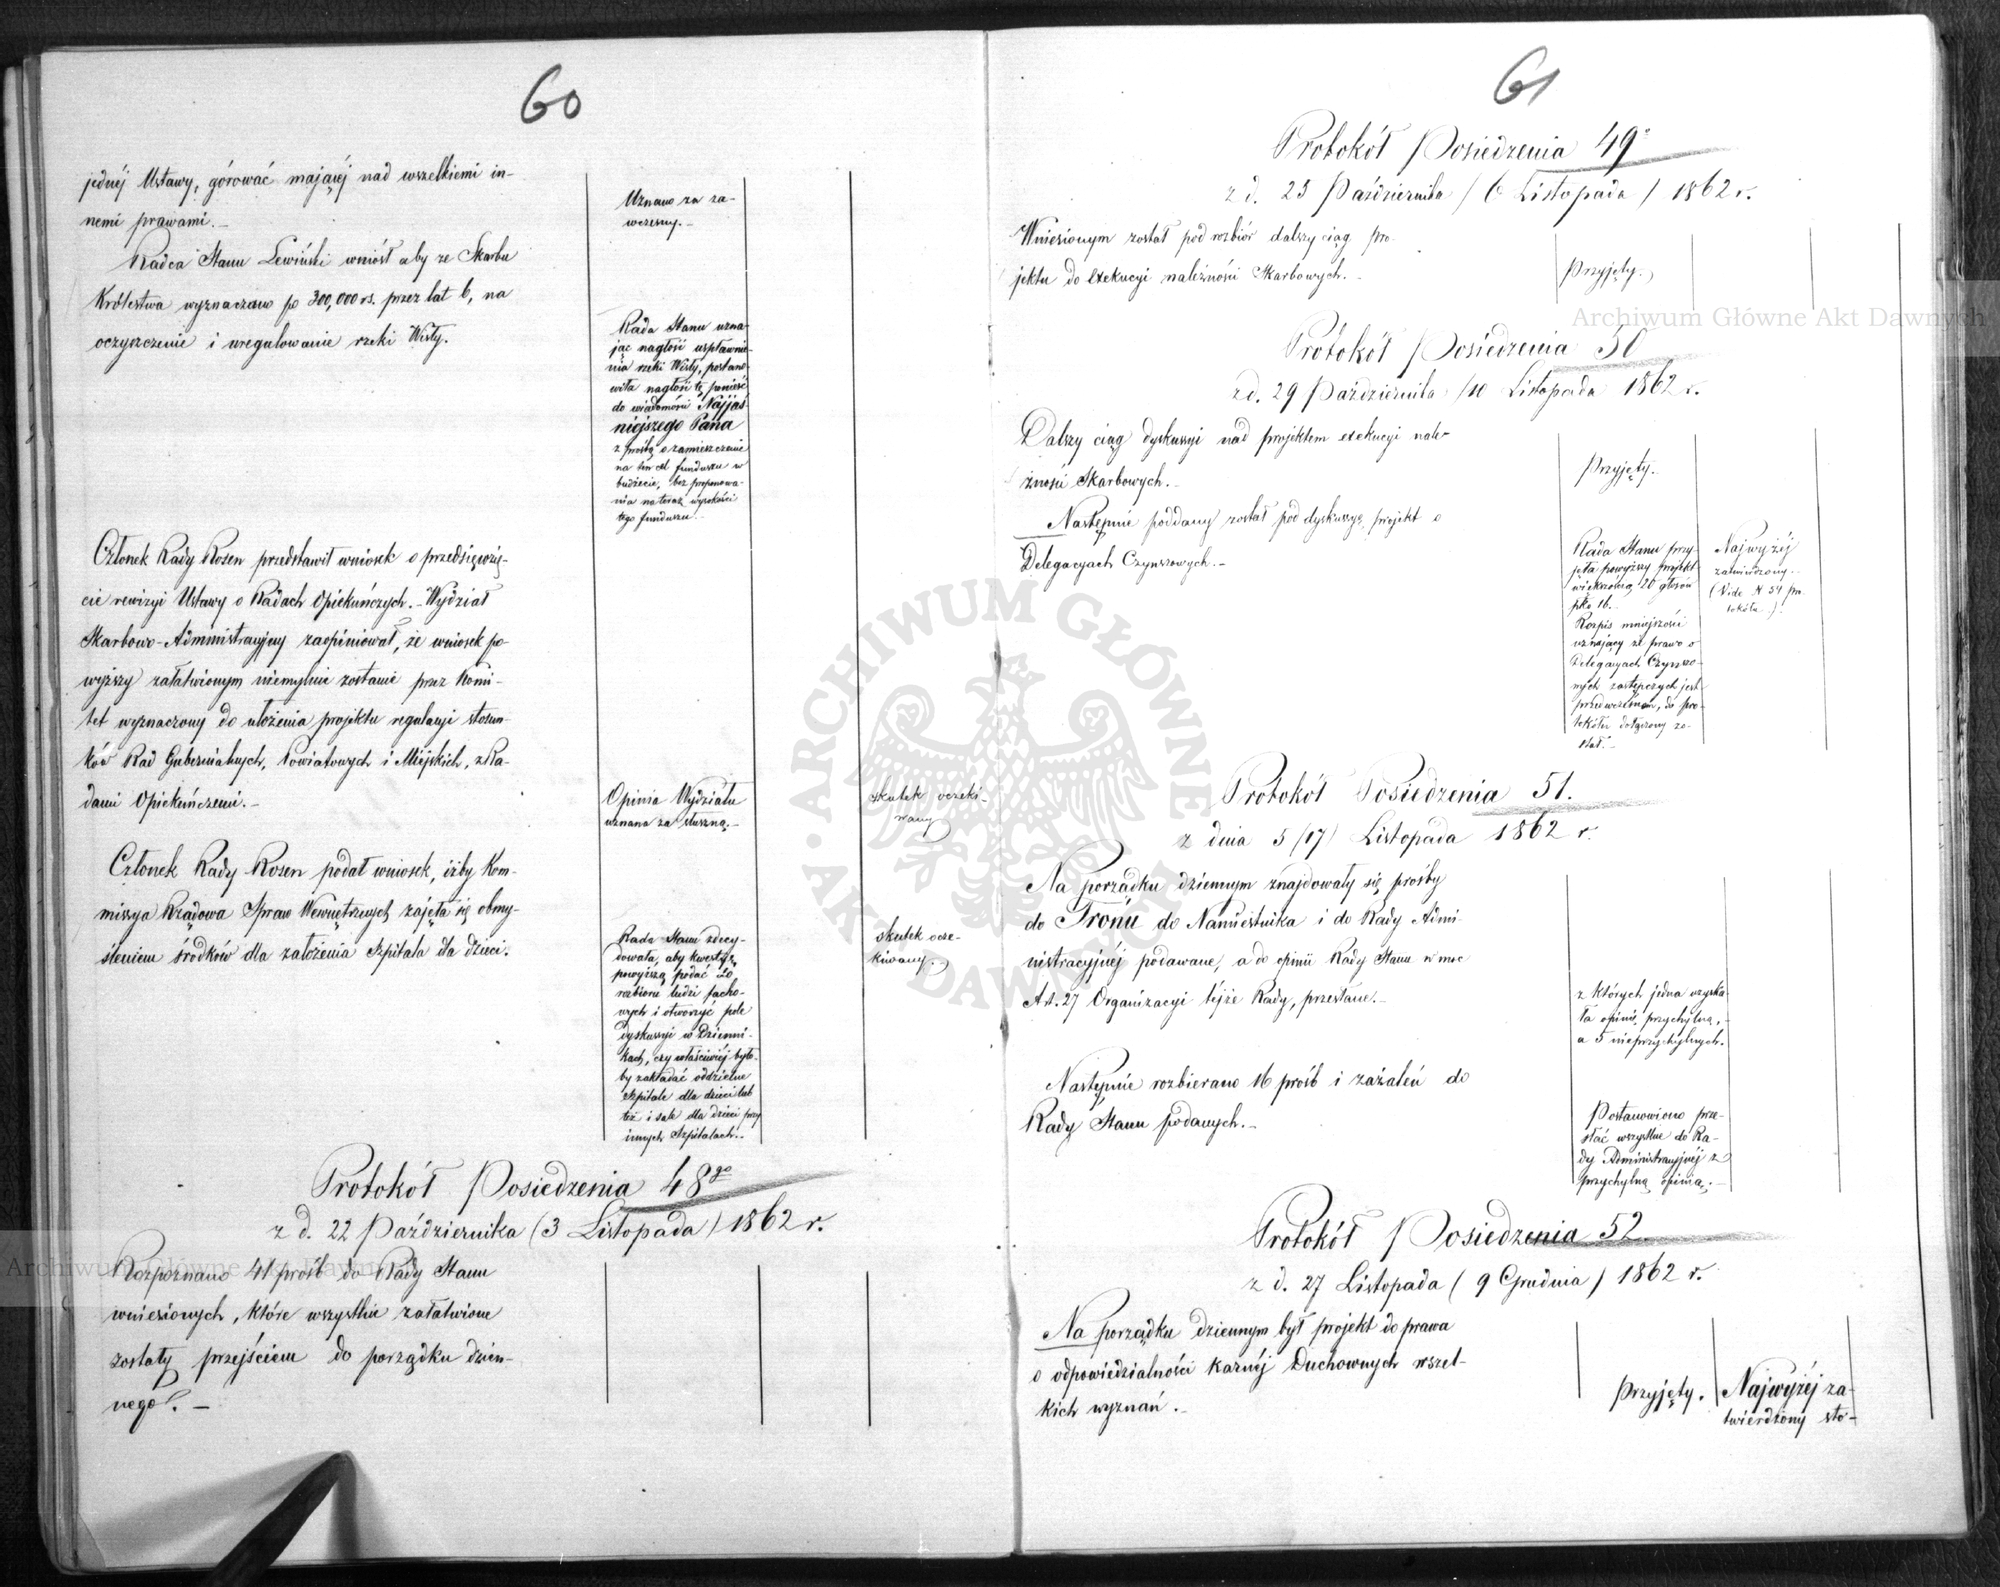 60
jednéj Ustawy, górować mającéj nad wszelkiemi in-
nemi prawami.-
Uznano za za-
wczesny.-
Radca Stanu Lewiński wniósł aby ze Skarbu
Królestwa wyznaczano po 300,000 rs. przez lat 6, na
oczyszczenie i uregulowanie rzeki Wisły.
Rada Stanu uzna-
jąc nagłość uspławnie-
nia rzeki Wisły, postano-
wiła nagłość tę ponieść
do wiadomości Najjaś-
niejszego Pana
z prośbą o zamieszczenie
na ten cel funduszu w
budżecie, bez proponowa-
nia na teraz wysokości
tego funduszu.-
Członek Rady Rosen przedstawił wniosek o przedsięwzię-
cie rewizyi Ustawy o Radach Opiekuńczych.- Wydział
Skarbowo-Administracyjny zaopiniował, że wniosek po-
wyższy załatwionym niemylnie zostanie przez Komi-
tet wyznaczony do ułożenia projektu regulacyi stosun-
ków Rad Gubernialnych, Powiatowych i Miejskich, z Ra-
dami Opiekuńczemi.-
Opinia Wydziału
uznana za słuszną.-
skutek oczeki-
wany
Członek Rady Rosen podał wniosek, iżby Kom-
missya Rządowa Spraw Wewnętrznych zajęła się obmy-
śleniem środków dla założenia Szpitala dla dzieci.
Rada Stanu zdecy-
dowała, aby kwestyę
powyższą podać do
rozbioru ludzi facho-
wych i otworzyć pole
dyskussyi w Dzienni-
kach, czy właściwiéj było-
by zakładać oddzielne
Szpitale dla dzieci lub
też i sale dla dzieci przy
innych Szpitalach.-
skutek ocze-
kiwany.-
Protokół Posiedzenia 48go
z d. 22 Października (3 Listopada) 1862 r.
Rozpoznano 41 próśb do Rady Stanu
wniesionych, które wszystkie załatwione
zostały przejściem do porządku dzien-
nego.-
61
Protokół Posiedzenia 49o
z d. 25 Października / 6 Listopada / 1862 r.
Wniesionym został pod rozbiór dalszy ciąg pro-
jektu do exekucyi należności Skarbowych.-
Przyjęty.
Protokół Posiedzenia 50
z d. 29 Października /10 Listopada 1862 r.
Dalszy ciąg dyskussyi nad projektem exekucyi nale-
żności Skarbowych.-
Przyjęty.-
Następnie poddany został pod dyskussyę projekt o
Delegacyach Czynszowych.-
Rada Stanu przy-
jęła powyższy projekt
większością 20 głosów
pko 16.-
Rozpis mniejszości
uznający że prawo o
Delegacyach Czynszo-
wych zastępczych jest
przedwczesném, do pro-
tokółu dołączony zo-
stał.-
Najwyżéj
zatwierdzony.-
(Vide N 54 pro-
tokółu.)
Protokół Posiedzenia 51.
z dnia 5 (17) Listopada 1862 r.
Na porządku dziennym znajdowały się prośby
do Tronu do Namiestnika i do Rady Admi-
nistracyjnéj podawane, a do opinii Rady Stanu w moc
Art. 27 Organizacyi téjże Rady, przesłane.-
z których jedna uzyska-
ła opinię przychylną,
a 5 nieprzychylnych.
Następnie rozbierano 16 próśb i zażaleń do
Rady Stanu podanych.-
Postanowiono prze-
słać wszystkie do Ra-
dy Administracyjnéj z
przychylną opinią.-
Protokół Posiedzenia 52
z d. 27 Listopada ( 9 Grudnia ) 1862 r.
Na porządku dziennym był projekt do prawa
o odpowiedzialności karnéj Duchownych wszel-
kich wyznań.-
Przyjęty.
Najwyżéj za-
twierdzony sto-
Archiwum Główne Akt Dawnych
Archiwum Główne Akt Dawnych
ARCHIWUM GŁÓWNE AKT DAWNYCH